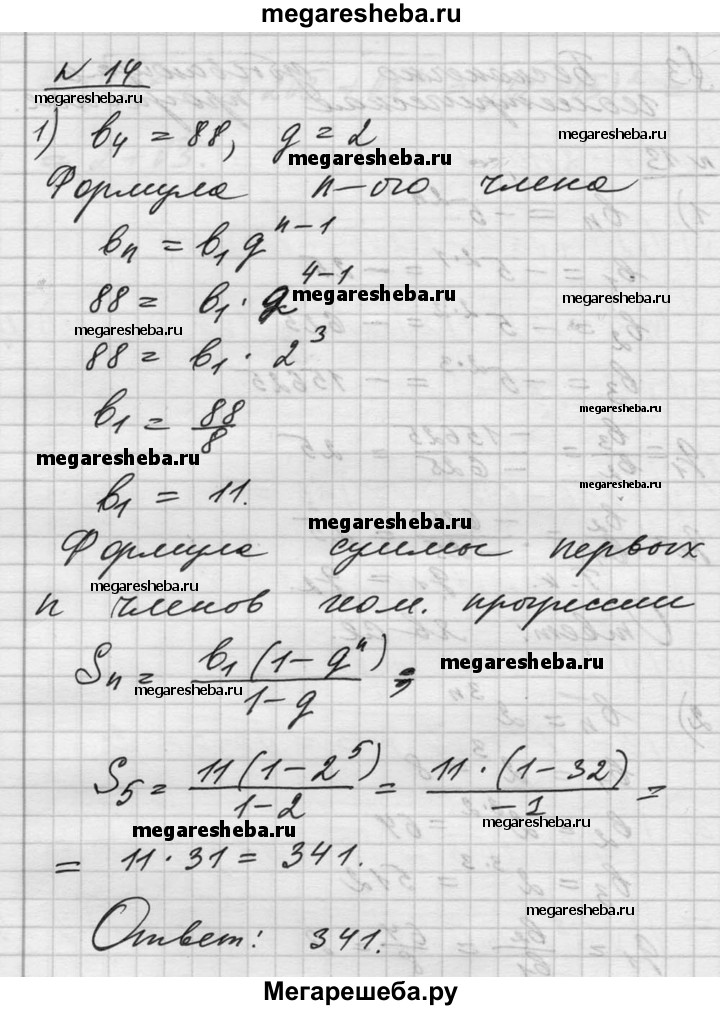 megaresheba.ru
N 14
megaresheba.ru
1) b₄ = 88, q = 2
megaresheba.ru
Формула n-ого члена
bₙ = b₁ qⁿ⁻¹
88 = b₁ · q⁴⁻¹
megaresheba.ru
megaresheba.ru
megaresheba.ru
88 = b₁ · 2³
b₁ = 88/8
megaresheba.ru
megaresheba.ru
megaresheba.ru
b₁ = 11.
megaresheba.ru
Формула суммы первых
megaresheba.ru
n членов геом. прогрессии
Sₙ = b₁(1-qⁿ)/1-q ;
megaresheba.ru
megaresheba.ru
S₅ = 11(1-2⁵)/1-2 = 11·(1-32)/-1 =
megaresheba.ru
megaresheba.ru
= 11·31 = 341.
megaresheba.ru
Ответ: 341.
Мегарешеба.ру